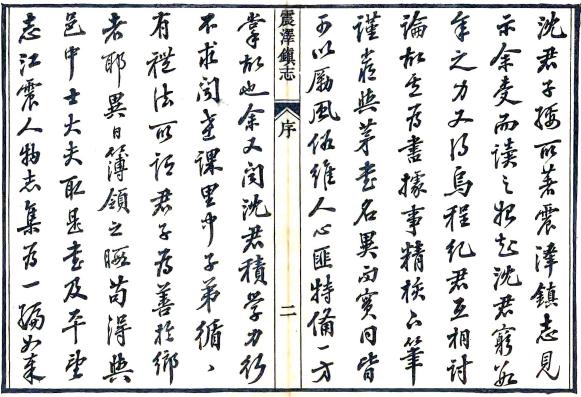 沈君子綏所著震澤鎮志見
示余受而讀之始知沈君窮數
年之力又得烏程紀君互相討
論故其為書據事精核下筆
謹嚴與茅書名異而實同皆
可以厲風俗維人心匪特備一方
震澤鎮志
序
二
掌故也余又聞沈君積學力行
不求聞達課里中子弟循〻
有禮法所謂君子為善於鄉
者耶異日簿領之暇苟得與
邑中士大夫取是書及平望
志江震人物志集為一編如來